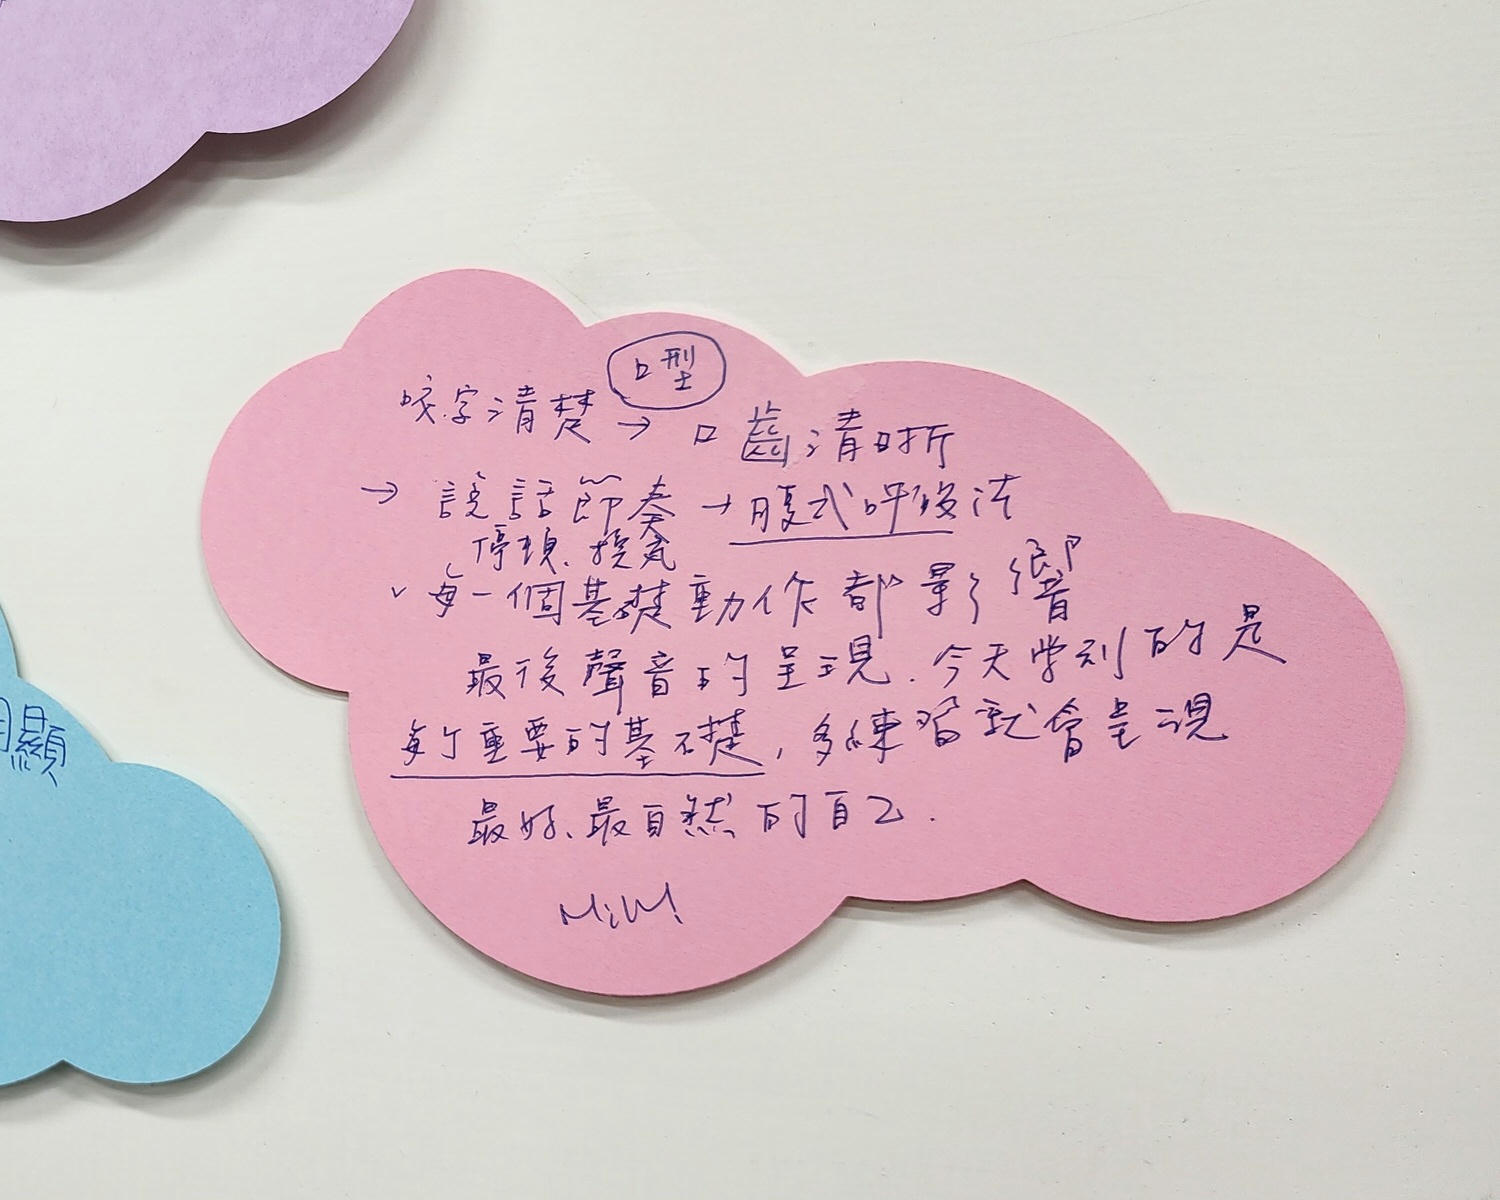 口型
咬字清楚 → 口齒清晰
→ 說話節奏 → 腹式呼吸法
停頓、換氣
v 每一個基礎動作都影響
最後聲音的呈現.今天學到的是
重要的基礎,多練習就會呈現
最好、最自然的自己.
顯